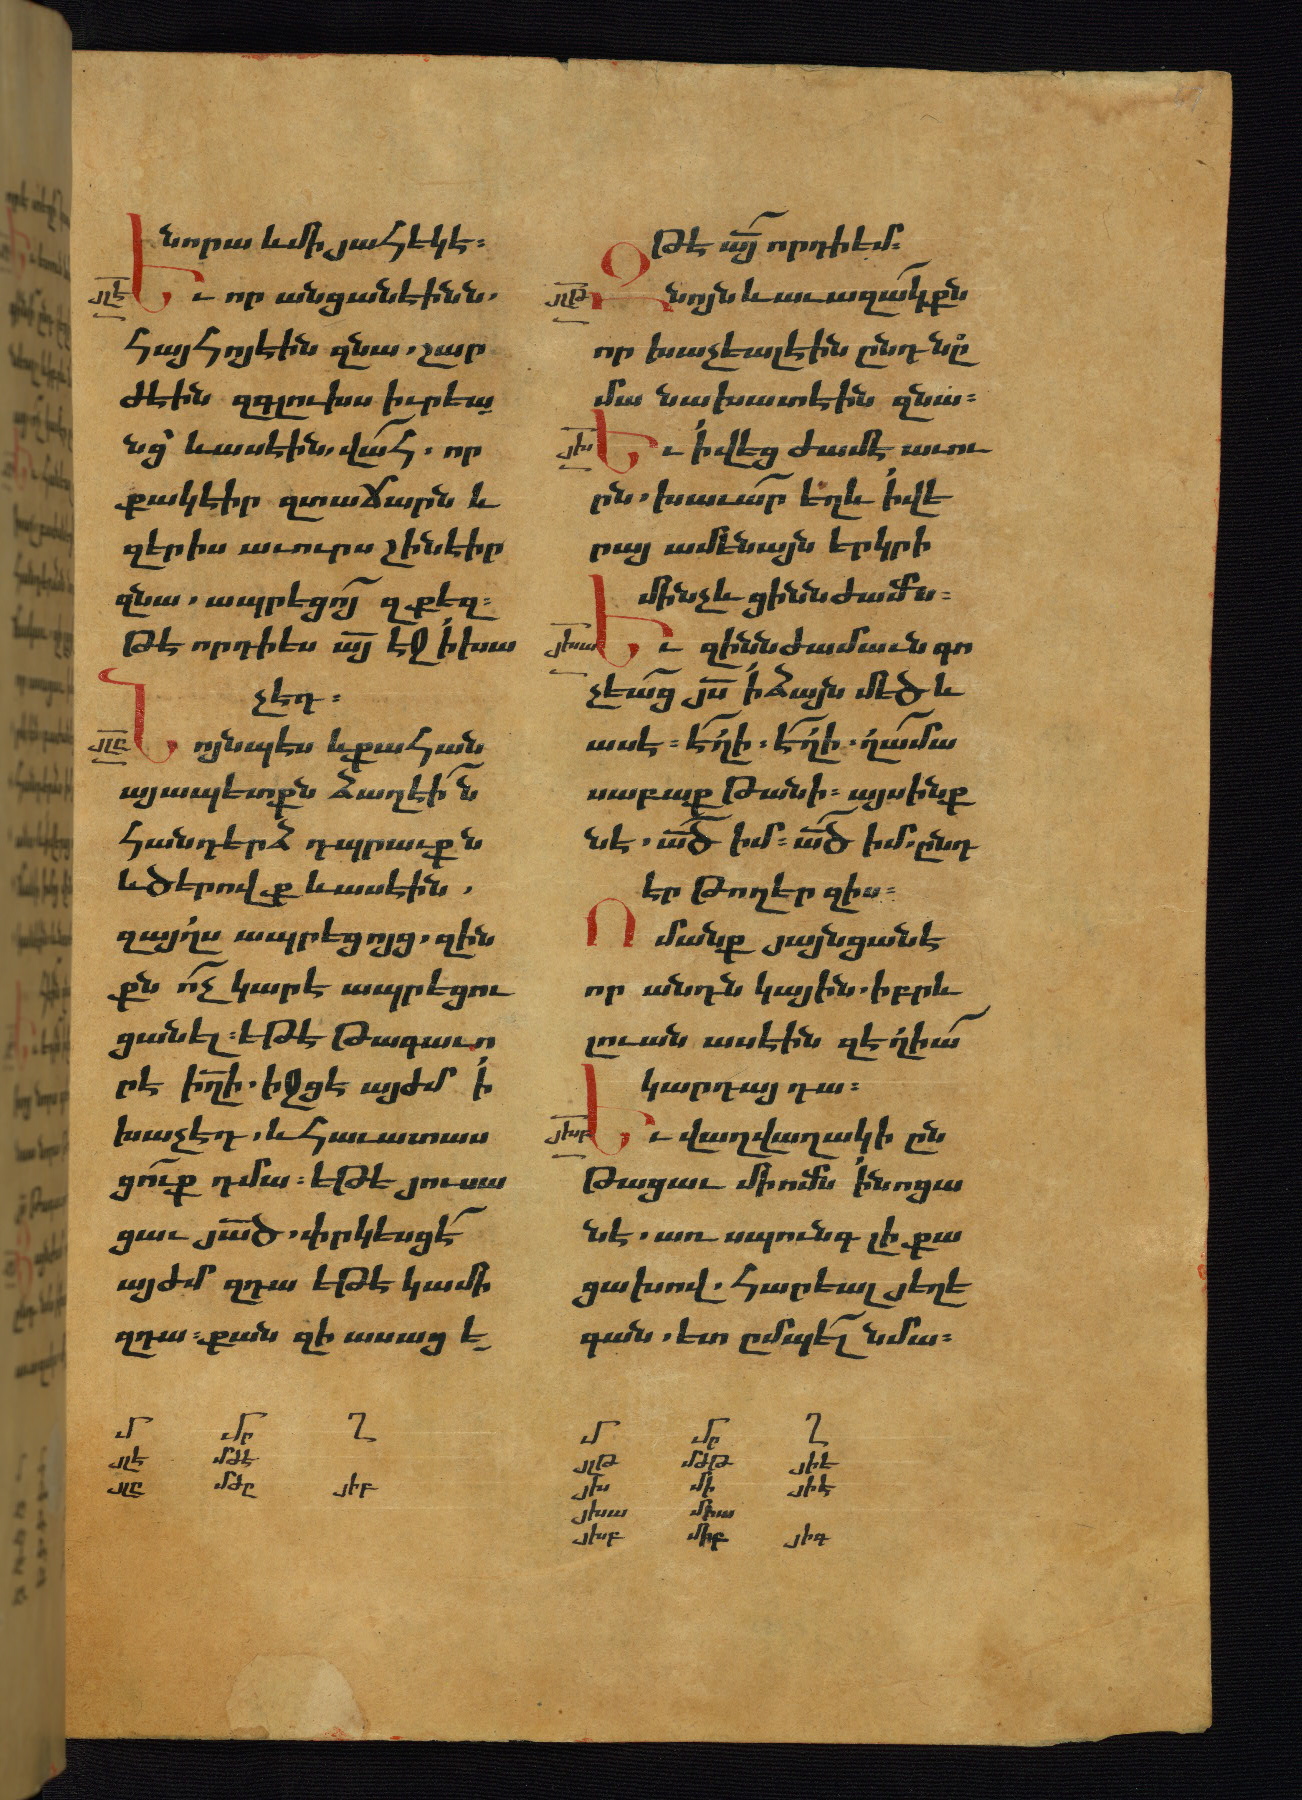 նորա և մի յահեկէ։
յլէ Եւ որ անցանէինն,
հայհոյէին զնա, շար
ժէին զգլուխս իւրեա
նց՝ և ասէին, վա՜հ, որ
քակէիր զտաճարն և
զերիս աւուրս շինէիր
զնա, ապրեցո՛ զքեզ։
Թէ որդի ես ա՟յ էջ ի խա
չէդ։
յլը Նոյնպէս և քահան
այապետքն ձաղէի՜ն
հանդերձ դպրաւքն
և ծերովք և ասէին,
զայլս ապրեցոյց, զին
քն ո՟չ կարէ ապրեցու
ցանել։ եթէ թագաւո
րէ ի՟ղի, իջցէ այժմ ի
խաչէդ, և հաւատաս
ցուք դմա։ եթէ յուսա
ցաւ յա՟ծ, փրկեսցէ՜
այժմ զդա եթէ կամի
զդա։ քան զի ասաց ե
թէ ա՟յ որդի եմ։
յլթ Զնոյն և աւազակքն
որ խաչեալ էին ընդ նը
մա նախատէին զնա։
յխ Եւ ի վեց ժամէ աւու
րն, խաւար եղև ի վե
րայ ամենայն երկրի
մինչև ցինն ժամն։
յխա Եւ զինն ժամաւն գո
չեաց յ՟ս ի ձայն մեծ և
ասէ։ է՜ղի, է՜ղի, ղամա
սաբաքթանի։ այսինք
ն է, ա՟ծ իմ։ ա՟ծ իմ, ընդ
էր թողեր զիս։
Ոմանք յայնցանէ
որ անդն կային, իբրև
լուան ասէին զեղիա՜
կարդայ դա։
յխբ Եւ վաղվաղակի ըն
թացաւ մի ոմն ի նոցա
նէ, առ սպունգ լի քա
ցախով, հարեալ յեղե
գան, ետ ըմպել նմա։
մ մր ղ
յլէ մժէ
յլը մժը յիբ
մ մր ղ
յլթ մժթ յիե
յխ մի յիէ
յխա միա
յխբ միբ յիգ